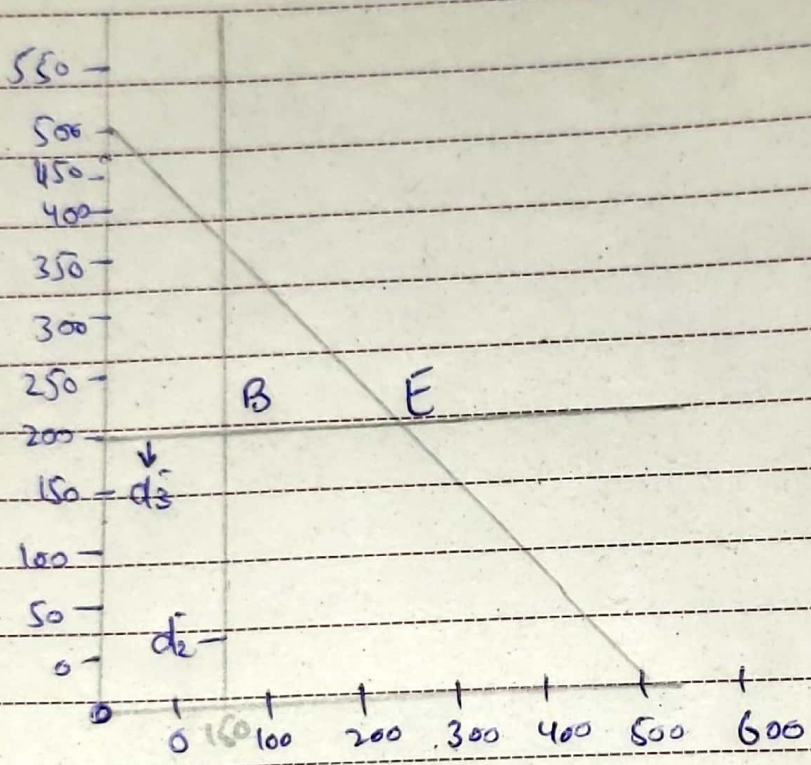 550
500
450
400
350
300
250 B E
200
150 d3
100
50 d2
0
0
0 150 100 200 300 400 500 600